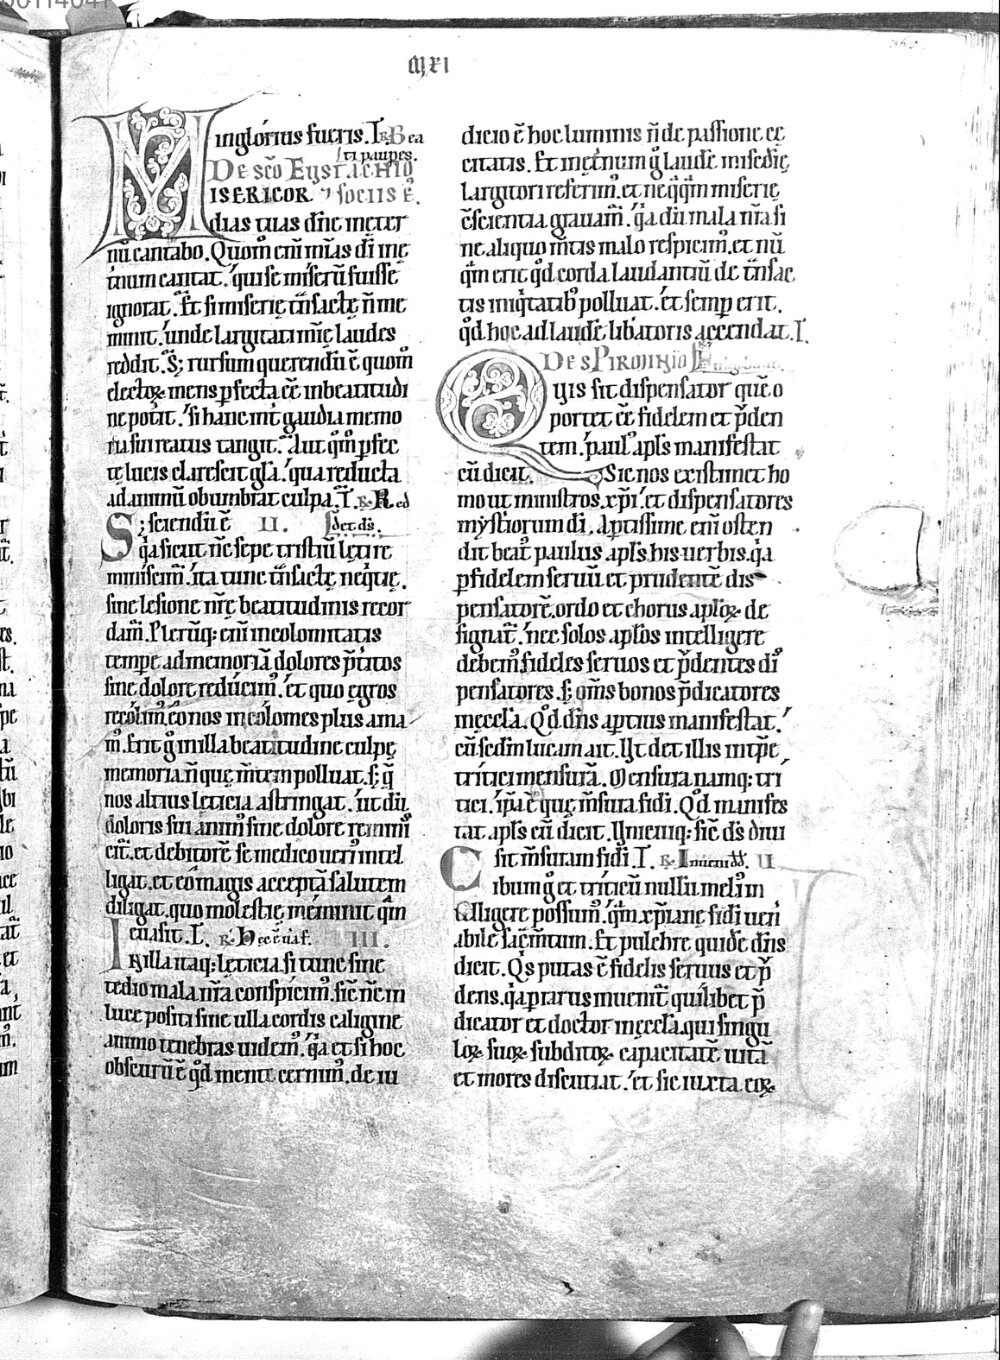 cxi
inglorius fueris. I. R. Bea
ti paupes.
De sco Eustachio
ISERICOR ⁊ sociis e.
dias tuas dn̄e in etr̄
nū cantabo. Quom̄ eni m̄ias di in e
t̄num cantat. qui se miserū fuisse
ignorat. Et si miserię t̄nsactę n̄ me
minit. unde largitati m̄ie laudes
reddit. S; rursum querendū ē quom̄
electoꝝ mens pfecta ēe in beatitudi
ne potit. si hanc int̄ gaudia memo
ria sui reatus tangit. Aut q̄m̄ pfec
te lucis clarescit gl̄a. qua reducta
ad animū obumbrat culpa. I. R. Red
S; sciendū ē II. det ds.
q̄a sicut n̄c sepe tristiū lęti re
miniscim̄. ita tunc t̄nsactę neq̄tię.
sine lesione nr̄ę beatitudinis recor
dam̄. Plerūq: eni incolomitatis
tempe ad memoriā dolores p̄titos
sine dolore reducim̄. et quo ęgros
recolim̄. eo nos incolomes plus ama
m̄. Erit g̊ in illa beatitudine culpę
memoria. n̄ quę m̄tem polluat. s; q̄
nos altius leticia astringat. ut dū
doloris sui anim̄ sine dolore remini
cit̄. et debitorē se medico uerī intel
ligat. et eo magis acceptā salutem
diligat. quo molestię meminit q̄m
euasit. I. R. Hec est uᷓ f. III.
In illa itaq: lęticia si tunc sine
tedio mala nr̄a conspicim̄. sic n̄c in
luce positi sine ulla cordis caligine
animo tenebras uidem̄. q̄a et si hoc
obscurū ē q̄d mente cernim̄. de iu
dicio ē hoc luminis n̄ de passione cę
citatis. Et in et̄num g̊ laudē misedię
largitori referim̄. et neq̄q̄m miserię
c̄scientia grauam̄. q̄a dū mala nr̄a si
ne aliquo m̄tis malo respicim̄. et nū
q̄m erit q̄d corda laudantiū de t̄nsac
tis iniq̄tatib; polluat. et semp erit.
q̄d hoc ad laudē lib̄atoris accendat. I.
De spiromio
Quis sit dispensator quē o
portet ēe fidelem et p̄den
tem. paul̄ apl̄s manifestat
cū dicit. Sic nos existimet ho
mo ut ministros xp̄i. et dispensatores
mystiorum di. Aptissime eni osten
dit beat̄ paulus apl̄s his uerbis. q̄a
p fidelem seruū et prudentē dis
pensatorē. ordo et chorus aploꝝ de
signat̄. nec solos aplōs intelligere
debem̄ fideles seruos et p̄dentes di
pensatores. s; om̄s bonos p̄dicatores
in ęccl̄a. Q̄d dn̄s aptius manifestat.
cū sedm̄ lucam ait. Ut det illis in tp̄e
tritici mensurā. Mensura namq: tri
tici. ip̄a ē quę m̄sura fidi. Q̄d manifes
tat apl̄s cū dicit. Unicuiq: sic ds̄ diui
sit m̄suram fidi. I. R. Inueni dd̄. II
Cibum g̊ et triticū nullū meli in
telligere possum̄. q̄m xp̄iane fidi ueri
abile sac̄m̄tum. Et pulchre quidē dn̄s
dicit. Qs putas ē fidelis seruus et p̄
dens. q̄a p rarus inuenit̄ quilibet p̄
dicator et doctor in ęccl̄a. qui singu
loꝝ suoꝝ subditoꝝ capacitatē uitā
et mores discutiat. et sic iuxta eoꝝ